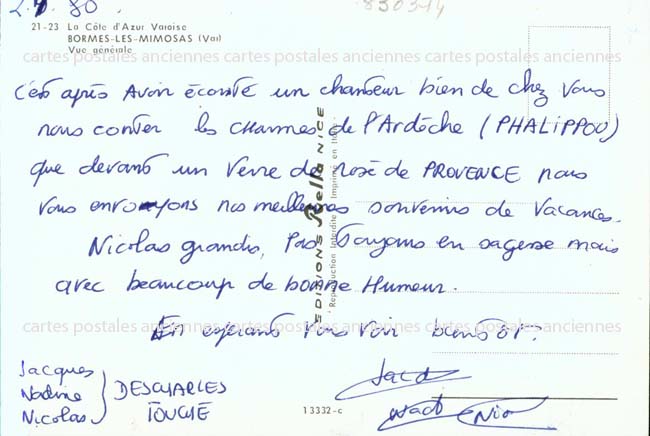 2.9.80.
830314
21-23 La Côte d'Azur Varoise
BORMES-LES-MIMOSAS (Var)
Vue générale
cartes postales anciennes cartes postales anciennes cartes postales anciennes
C'est après Avoir écouté un chanteur bien de chez Vous
nous conter les charmes de l'Ardèche (PHALIPPOU)
que devant un Verre de rosé de PROVENCE nous
Vous envoyons nos meilleures souvenirs de Vacances.
Nicolas grandis, pas toujours en sagesse mais
avec beaucoup de bonne Humeur.
cartes postales anciennes cartes postales anciennes cartes postales anciennes
En espérant Vous Voir bientôt.
Jacques
Nadine
Nicolas
DESCHARLES
TOUCHÉ
Jacq
Nad
Nic
EDITIONS Rella NICE
Reproduction Interdite Imprimé en
13332-c